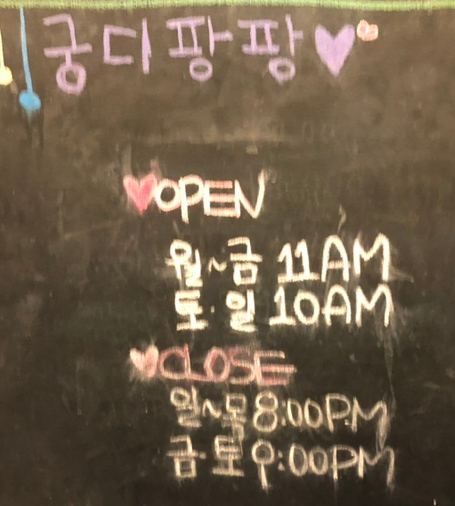 궁디팡팡♥
♥OPEN
월~금 11AM
토·일 10AM
♥CLOSE
일~목 8:00PM
금·토 9:00PM